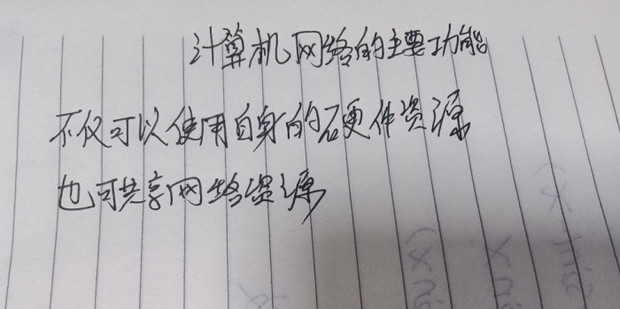 计算机网络的主要功能
不仅可以使用自身的硬件资源
也可共享网络资源